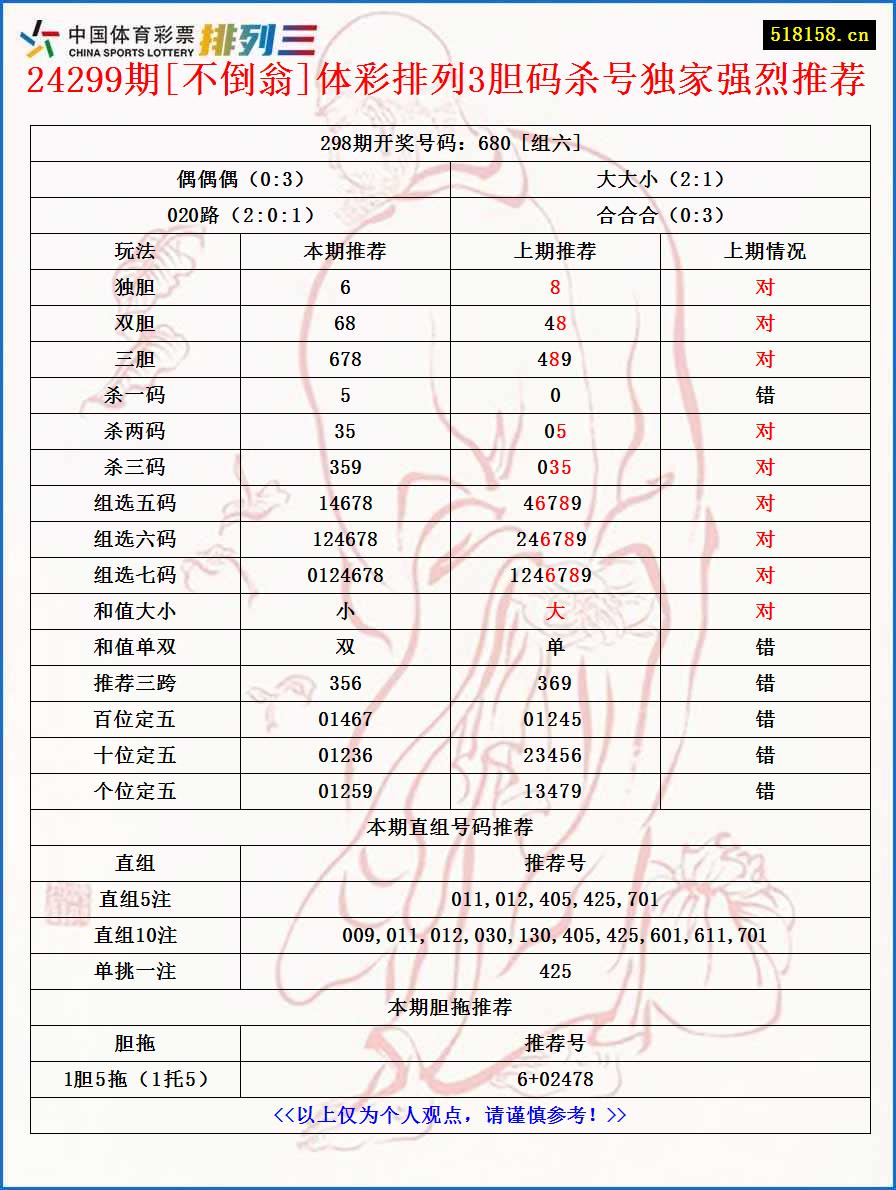 中国体育彩票 排列三
CHINA SPORTS LOTTERY
518158.cn
24299期[不倒翁]体彩排列3胆码杀号独家强烈推荐
298期开奖号码：680 [组六]
偶偶偶（0:3） 大大小（2:1）
020路（2:0:1） 合合合（0:3）
玩法 本期推荐 上期推荐 上期情况
独胆 6 8 对
双胆 68 48 对
三胆 678 489 对
杀一码 5 0 错
杀两码 35 05 对
杀三码 359 035 对
组选五码 14678 46789 对
组选六码 124678 246789 对
组选七码 0124678 1246789 对
和值大小 小 大 对
和值单双 双 单 错
推荐三跨 356 369 错
百位定五 01467 01245 错
十位定五 01236 23456 错
个位定五 01259 13479 错
本期直组号码推荐
直组 推荐号
直组5注 011,012,405,425,701
直组10注 009,011,012,030,130,405,425,601,611,701
单挑一注 425
本期胆拖推荐
胆拖 推荐号
1胆5拖（1托5） 6+02478
<<以上仅为个人观点，请谨慎参考！>>